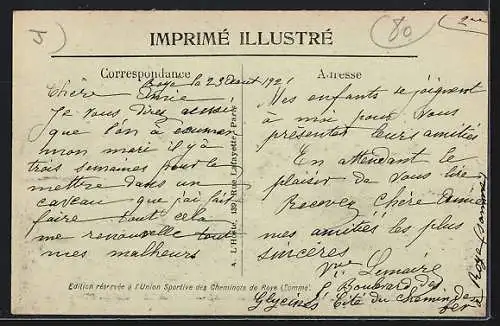 80
IMPRIMÉ ILLUSTRÉ
Correspondance
Adresse
Roye le 23 Aout 1921
Chère Amie
Je vous dirai aussi
que l'on à exumé
mon mari il y à
trois semaines pour le
mettre dans un
caveau que j'ai fait
faire tout cela
me renouvelle tout
mes malheurs
Mes enfants se joignent
à moi pour vous
présenter leurs amitiés
En attendant le
plaisir de vous lire
Recevez Chère Amie
mes amitiés les plus
sincères
Vve Lemaire
Boulevard des
Glycines Cité du Chemin de
fer
à Roye (Somme)
A. L'Hoste, 139 Rue Lafayette, Paris
Edition réservée à l'Union Sportive des Cheminots de Roye (Somme)